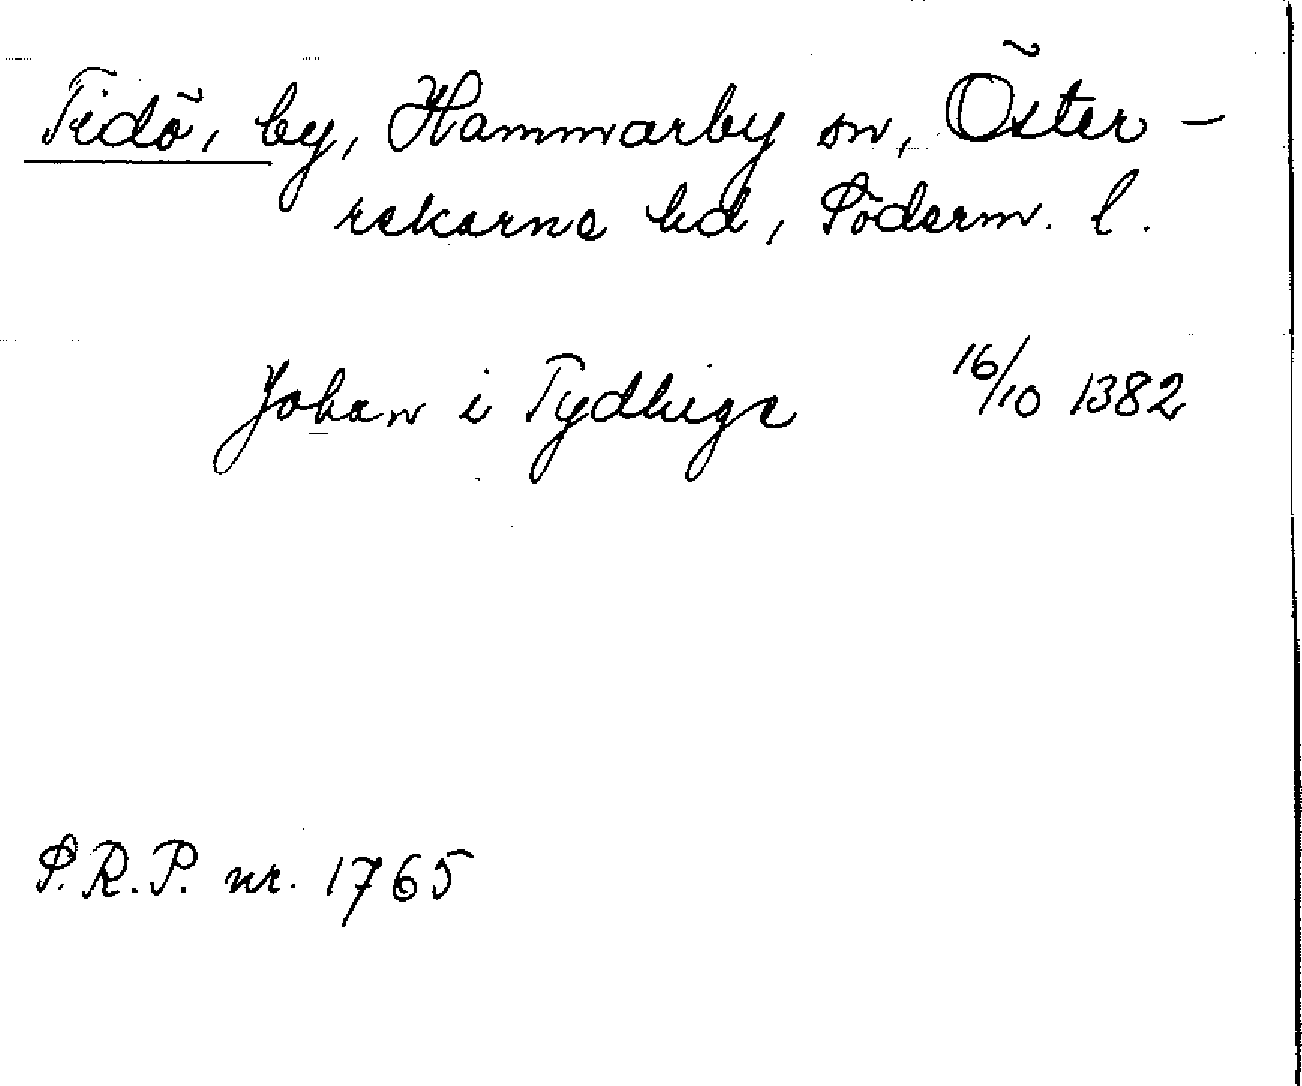 Tidö, by, Hammarby sn, Öster-
rekarne hd, Söderm. l.
Johan i Tydhige 16/10 1382
S.R.P. nr. 1765